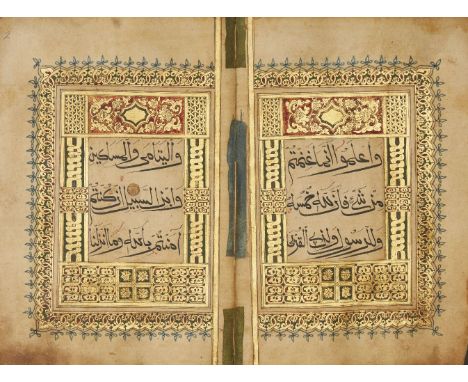 واعلموا انما غنمتم
من شئ فان لله خمسه
وللرسول ولذى القربى
واليتامى والمسكين
وابن السبيل ان كنتم
آمنتم بالله وما انزلنا